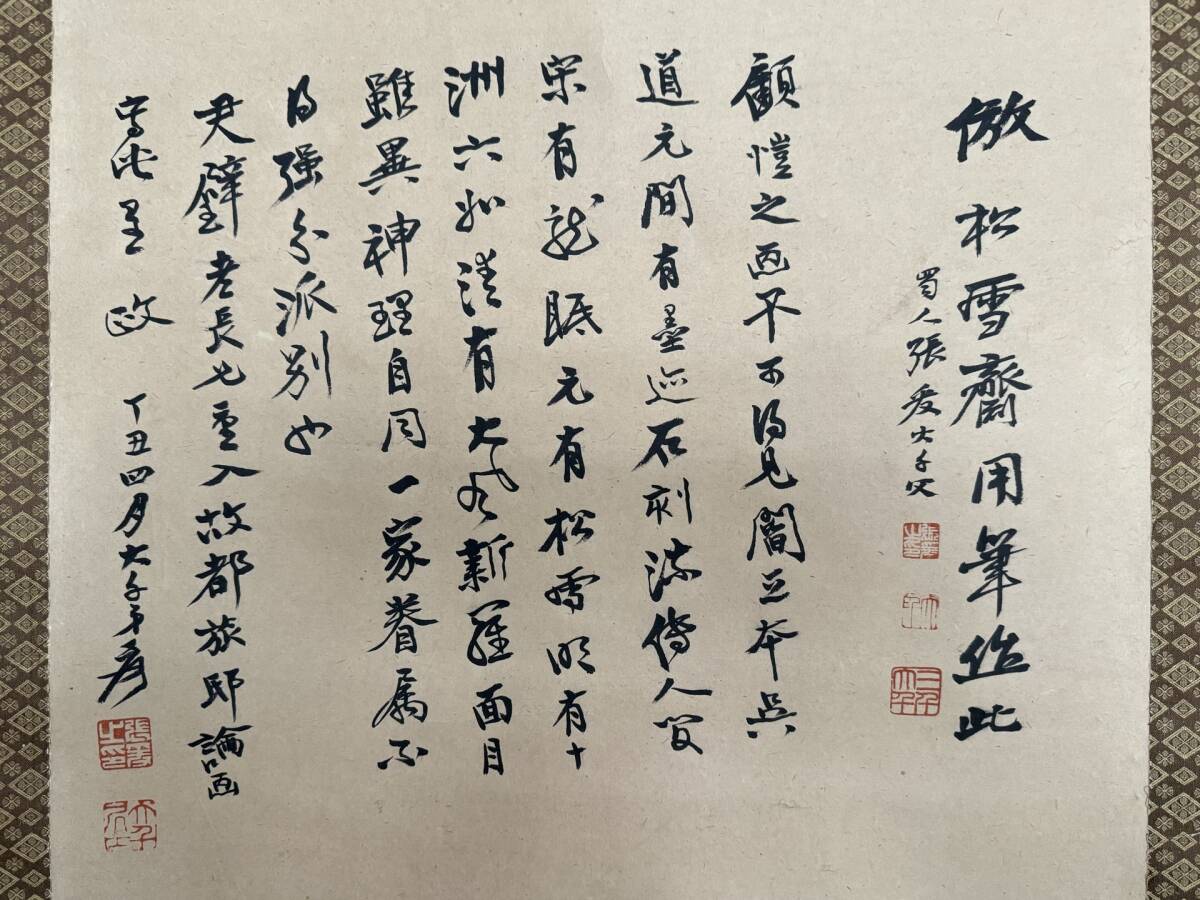 倣松雪齋用筆作此
蜀人張爰大千父
大千
三千大千
顧愷之画不可得見閻立本吳
道元間有墨迹石刻流傳人間
宋有龍眠元有松雪明有十
洲六如清有大風新羅面目
雖異神理自同一家眷屬不
得强分派別也
尹老長兄重入故都旅邸論画
寫此呈政 丁丑四月大千弟爰
張爰之印
大千居士